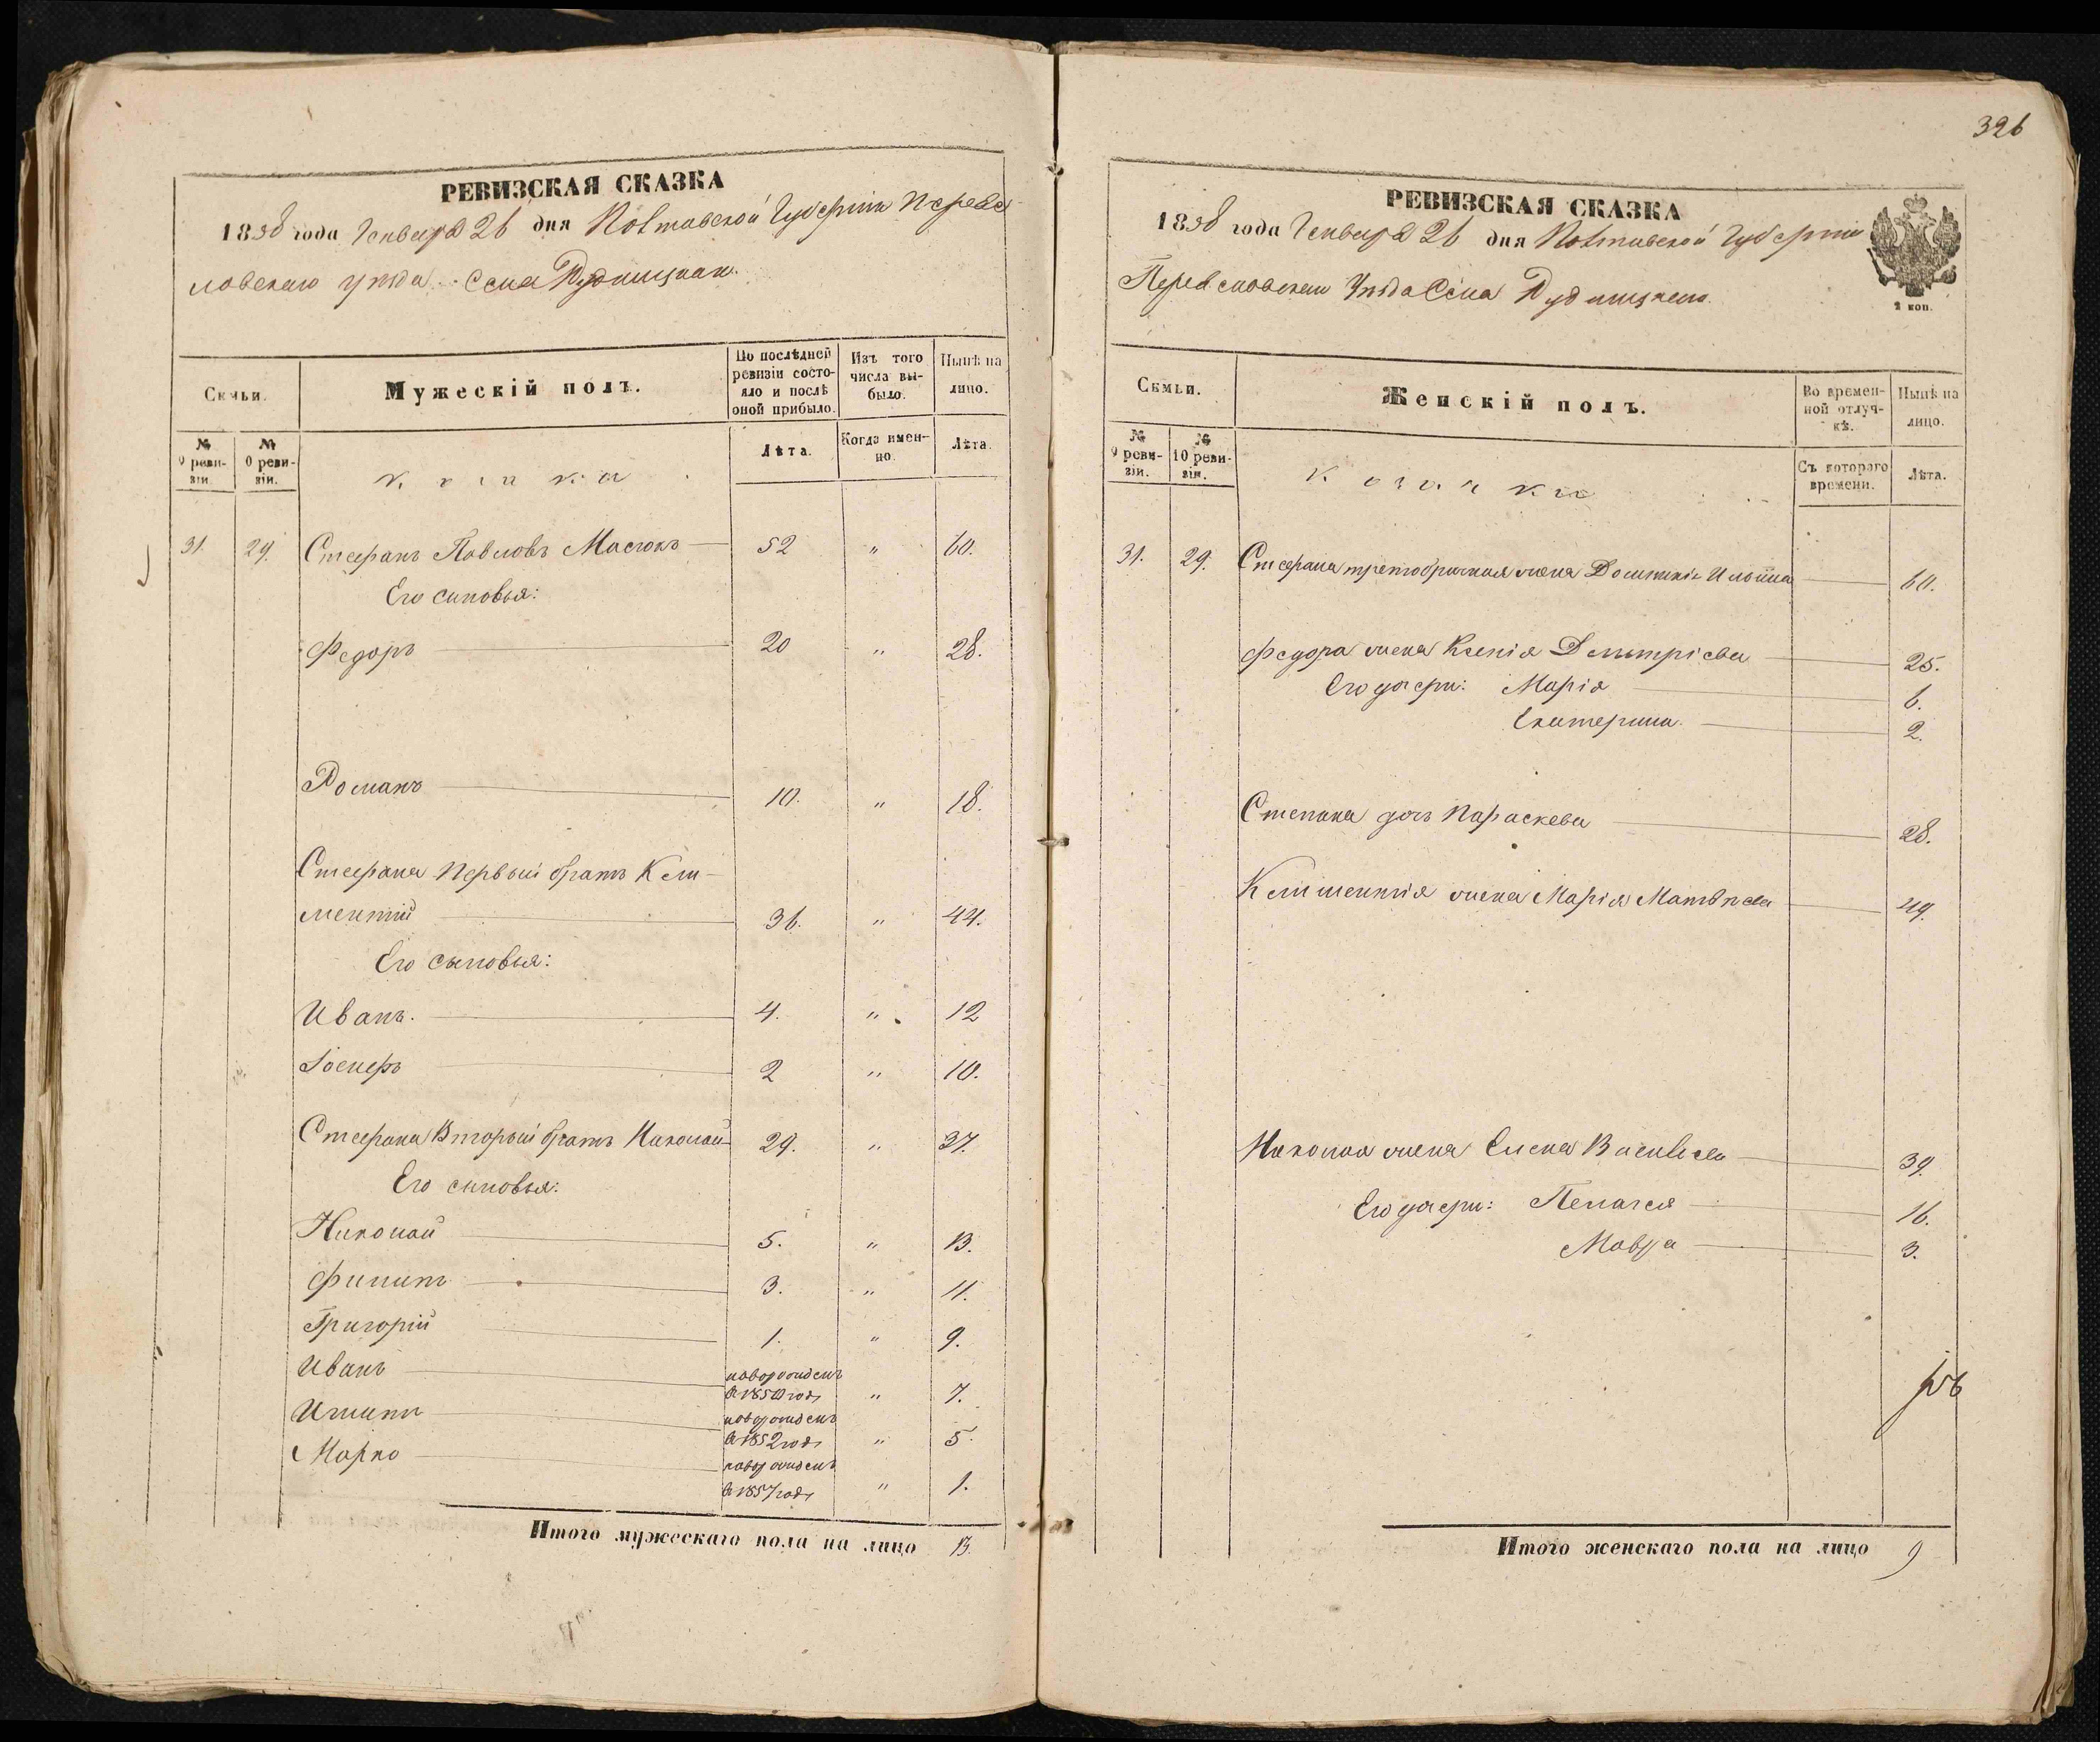 326
РЕВИЗСКАЯ СКАЗКА
1858 года Генваря 26 дня Полтавской Губерніи Переяс-
ловскаго уѣзда Села Рудницкаго.
Семьи.
Мужескій полъ.
По послѣдней ревизіи состояло и послѣ оной прибыло.
Изъ того числа выбыло.
Нынѣ на лицо.
№ 9 ревизіи.
№ 10 ревизіи.
Козаки
Лѣта.
Когда именно.
Лѣта.
31. 29. Стефанъ Павловъ Масюкъ 52 " 60.
Его сыновья:
Федоръ 20 " 28.
Романъ 10. " 18.
Стефана Первый братъ Кли-
ментій 36. " 44.
Его сыновья:
Иванъ. 4. " 12
Іосифъ 2 " 10.
Стефана Вторый братъ Николай 29. " 37.
Его сыновья:
Николай 5. " 13.
Филипъ 3. " 11.
Григорій 1. " 9.
Иванъ новорожденъ
в 1850 годѣ " 7.
новорожденъ
в 1852 годѣ " 5.
Марко новорожденъ
в 1857 годѣ " 1.
Итого мужескаго пола на лицо 13.
РЕВИЗСКАЯ СКАЗКА
1858 года Генваря 26 дня Полтавской Губерніи
Переясловскаго Уѣзда Села Рудницкаго.
2 коп.
Семьи.
Женскій полъ.
Во временной отлучкѣ.
Нынѣ на лицо.
№ 9 ревизіи.
№ 10 ревизіи.
Козачки
Съ котораго времени.
Лѣта.
31. 29. Стефана третобрачная жена Домникія Ильина 60.
Федора жена Ксенія Дмитріева 25.
Его дочери: Марія 6.
Екатерина. 2.
Степана дочь Параскева 28.
Климентія жена Марія Матвѣева 49.
Николая жена Елена Васильева 39.
Его дочери: Пелагея 16.
Мавра 3.
Итого женскаго пола на лицо 9